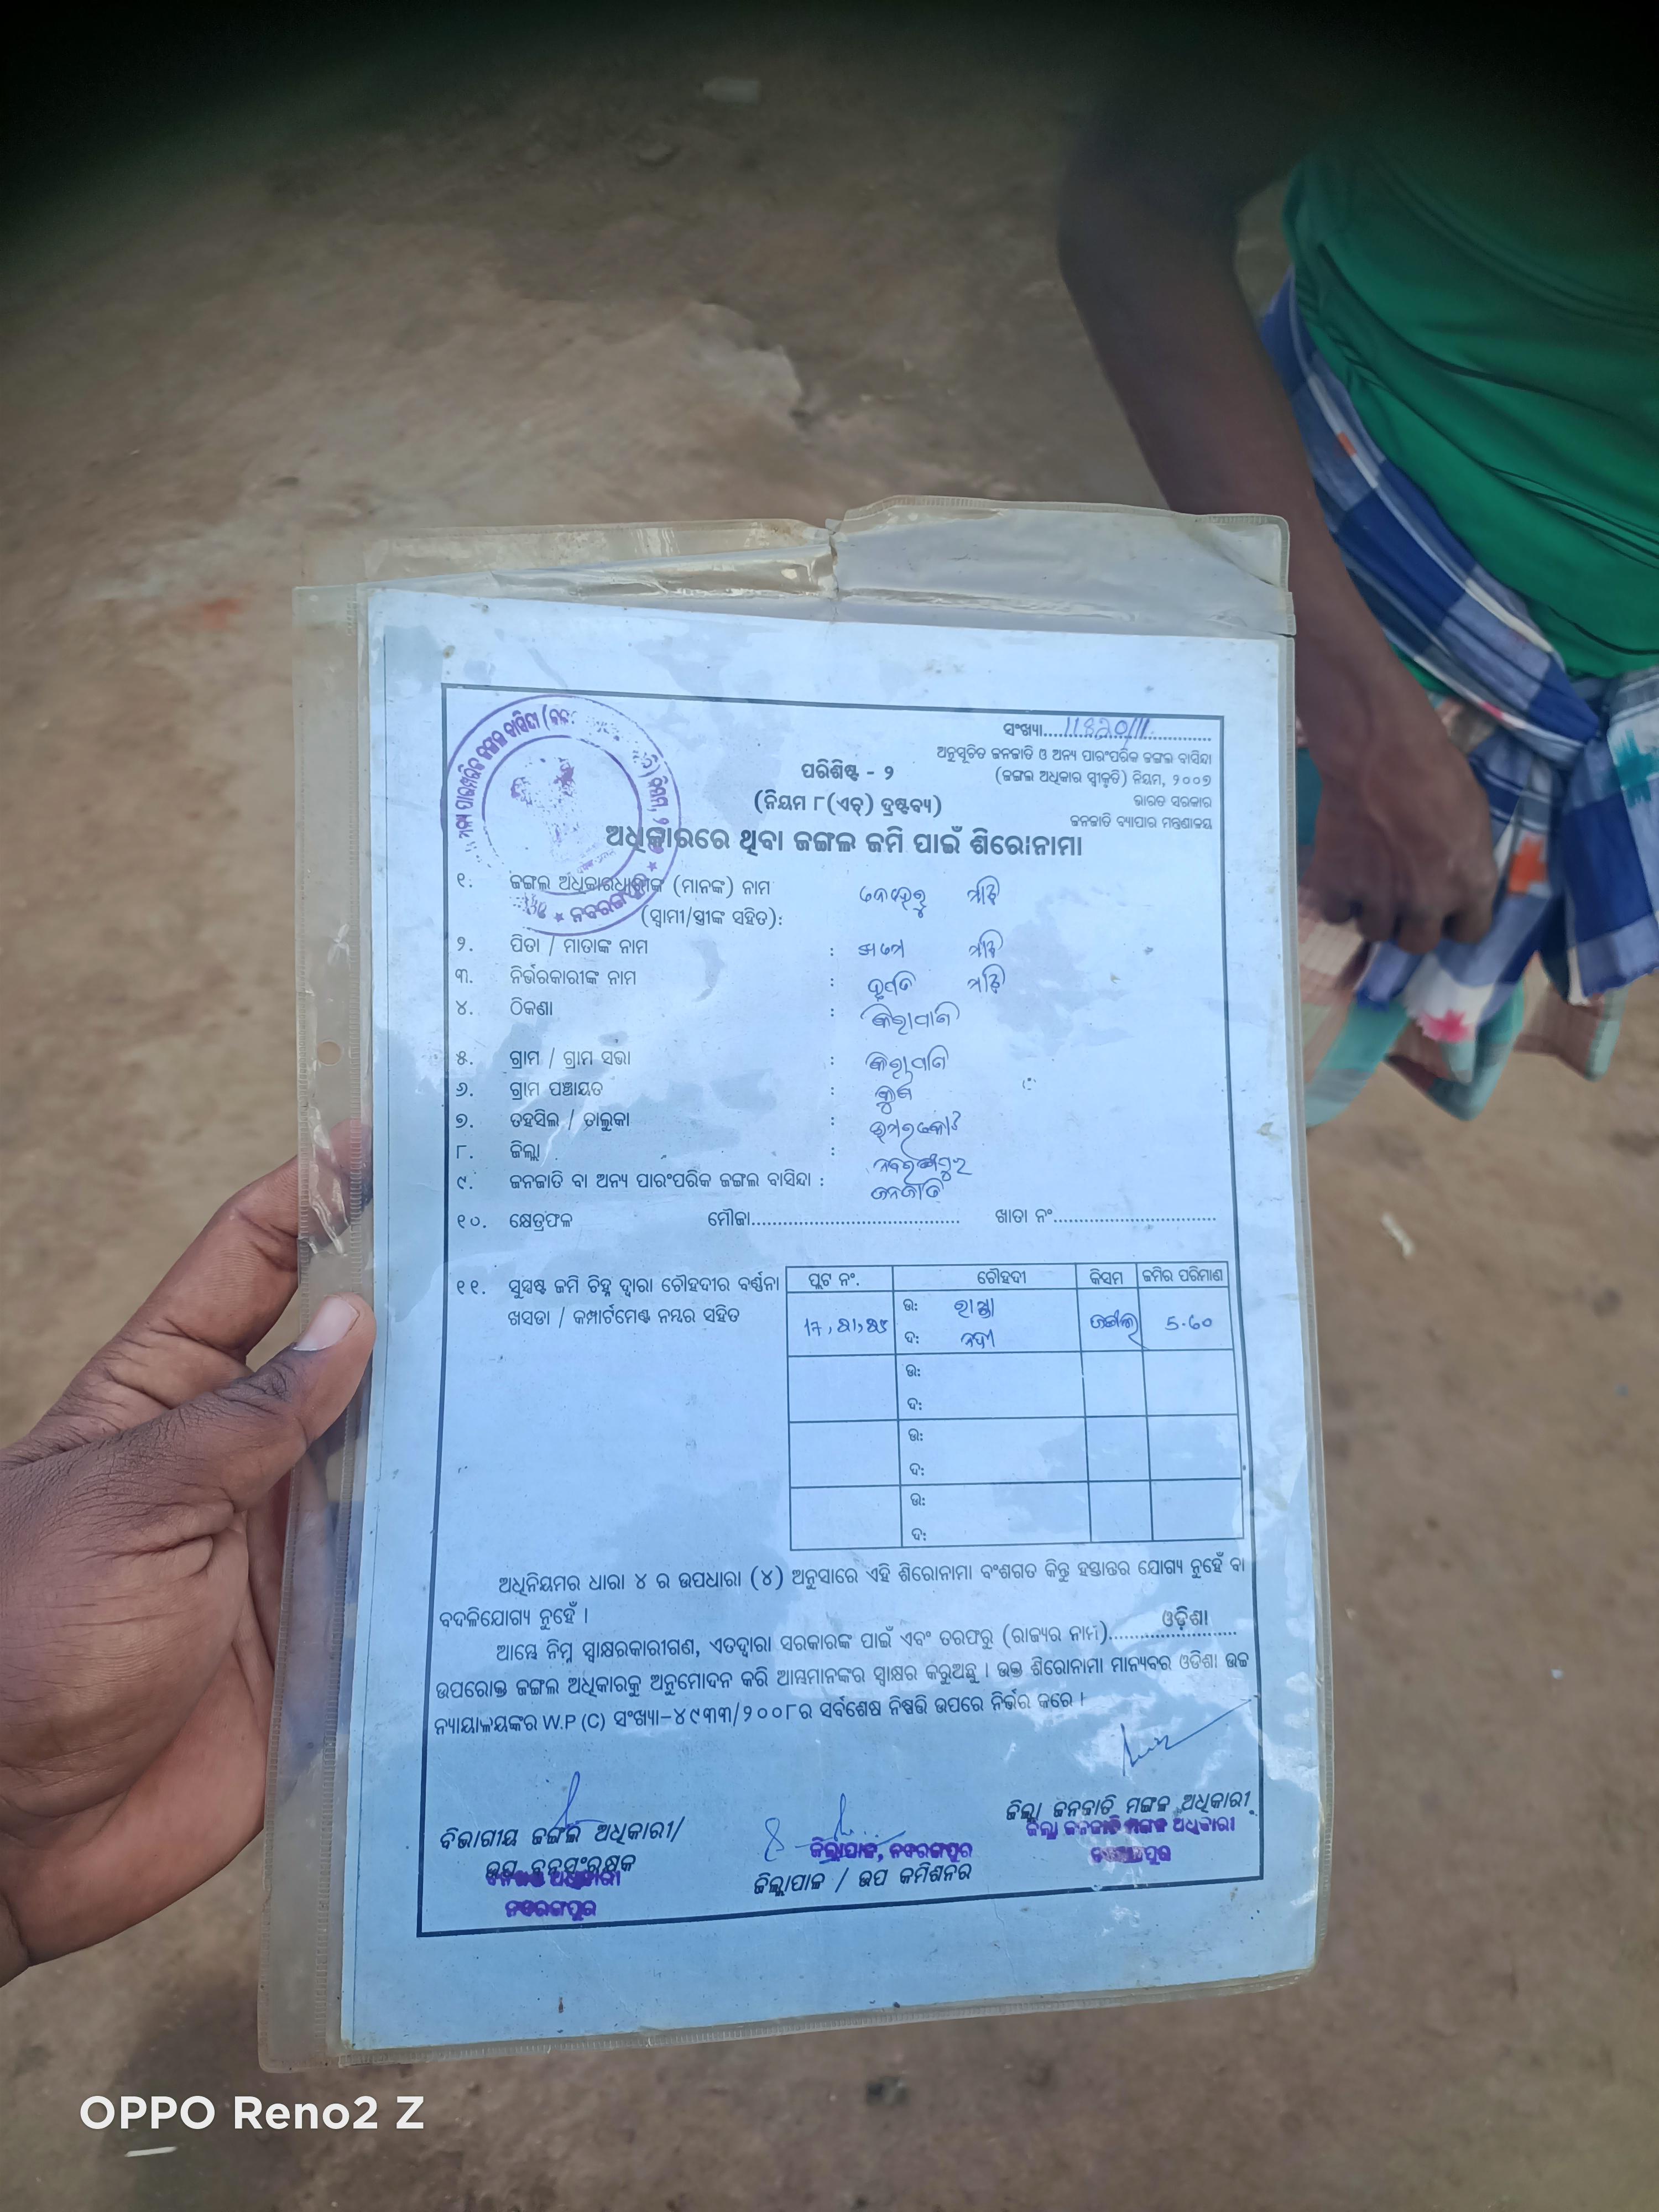 ସଂଖ୍ୟା
ଅନୁସୂଚିତ ଜନଜାତି ଓ ଅନ୍ୟ ପାରଂପରିକ ଜଙ୍ଗଲ ବାସିନ୍ଦା
(ଜଙ୍ଗଲ ଅଧିକାର ସ୍ୱୀକୃତି) ନିୟମ, ୨୦୦୭
ଭାରତ ସରକାର
ଜନଜାତି ବ୍ୟାପାର ମନ୍ତ୍ରଣାଳୟ
ପରିଶିଷ୍ଟ - ୨
(ନିୟମ ୮(ଏଚ୍) ଦ୍ରଷ୍ଟବ୍ୟ)
ଅଧିକାରରେ ଥିବା ଜଙ୍ଗଲ ଜମି ପାଇଁ ଶିରୋନାମା
୧. ଜଙ୍ଗଲ ଅଧିକାରଧାରୀଙ୍କ (ମାନଙ୍କ) ନାମ
(ସ୍ୱାମୀ/ସ୍ତ୍ରୀଙ୍କ ସହିତ):
୨. ପିତା / ମାତାଙ୍କ ନାମ :
୩. ନିର୍ଭରକାରୀଙ୍କ ନାମ :
୪. ଠିକଣା :
୫. ଗ୍ରାମ / ଗ୍ରାମ ସଭା :
୬. ଗ୍ରାମ ପଞ୍ଚାୟତ :
୭. ତହସିଲ / ତାଲୁକା : ଉମରକୋଟ
୮. ଜିଲ୍ଲା : ନବରଙ୍ଗପୁର
୯. ଜନଜାତି ବା ଅନ୍ୟ ପାରଂପରିକ ଜଙ୍ଗଲ ବାସିନ୍ଦା : ଜନଜାତି
୧୦. କ୍ଷେତ୍ରଫଳ ମୌଜା........................................ ଖାତା ନଂ...............................
୧୧. ସୁସ୍ପଷ୍ଟ ଜମି ଚିହ୍ନ ଦ୍ୱାରା ଚୌହଦୀର ବର୍ଣ୍ଣନା
ଖସଡା / କମ୍ପାର୍ଟମେଣ୍ଟ ନମ୍ବର ସହିତ
ପ୍ଲଟ ନଂ. ଚୌହଦୀ କିସମ ଜମିର ପରିମାଣ
ଉ: ରାସ୍ତା
ଦ: ନଦୀ
ଜଙ୍ଗଲ
ଉ:
ଦ:
ଉ:
ଦ:
ଉ:
ଦ:
ଅଧିନିୟମର ଧାରା ୪ ର ଉପଧାରା (୪) ଅନୁସାରେ ଏହି ଶିରୋନାମା ବଂଶଗତ କିନ୍ତୁ ହସ୍ତାନ୍ତର ଯୋଗ୍ୟ ନୁହେଁ ବା
ବଦଳିଯୋଗ୍ୟ ନୁହେଁ ।
ଆମ୍ଭେ ନିମ୍ନ ସ୍ୱାକ୍ଷରକାରୀଗଣ, ଏତଦ୍ୱାରା ସରକାରଙ୍କ ପାଇଁ ଏବଂ ତରଫରୁ (ରାଜ୍ୟର ନାମ)........ଓଡ଼ିଶା........
ଉପରୋକ୍ତ ଜଙ୍ଗଲ ଅଧିକାରକୁ ଅନୁମୋଦନ କରି ଆମ୍ଭମାନଙ୍କର ସ୍ୱାକ୍ଷର କରୁଅଛୁ । ଉକ୍ତ ଶିରୋନାମା ମାନ୍ୟବର ଓଡିଶା ଉଚ୍ଚ
ନ୍ୟାୟାଳୟଙ୍କର W.P (C) ସଂଖ୍ୟା-୪୯୩୩/୨୦୦୮ର ସର୍ବଶେଷ ନିଷ୍ପତ୍ତି ଉପରେ ନିର୍ଭର କରେ ।
ବିଭାଗୀୟ ଜଙ୍ଗଲ ଅଧିକାରୀ/
ଉପ ବନସଂରକ୍ଷକ
ନବରଙ୍ଗପୁର
ଜିଲ୍ଲାପାଳ, ନବରଙ୍ଗପୁର
ଜିଲ୍ଲାପାଳ / ଉପ କମିଶନର
ଜିଲ୍ଲା ଜନଜାତି ମଙ୍ଗଳ ଅଧିକାରୀ
ଜିଲ୍ଲା ଜନଜାତି ମଙ୍ଗଳ ଅଧିକାରୀ
OPPO Reno2 Z